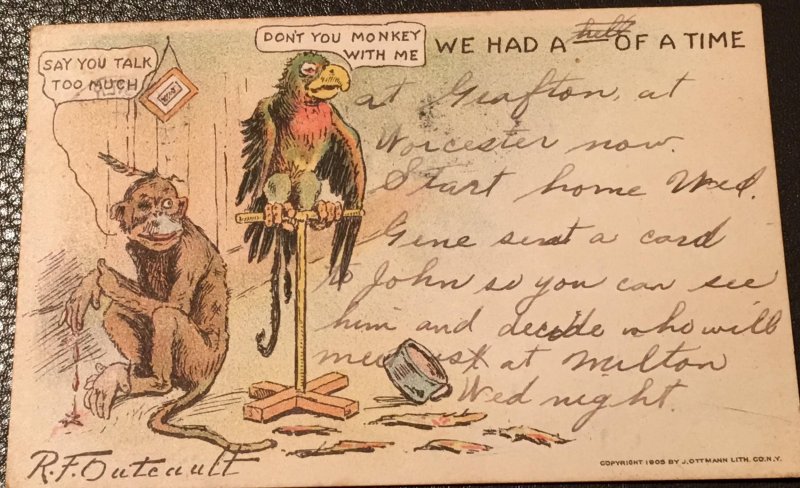 SAY YOU TALK
TOO MUCH
DON'T YOU MONKEY
WITH ME
WE HAD A hell OF A TIME
at Grafton, at
Worcester now.
Start home Wed.
Gene sent a card
to John so you can see
him and decide who will
meet us at Milton
Wed night.
R.F. Outcault
COPYRIGHT 1905 BY J. OTTMANN LITH. CO. N.Y.